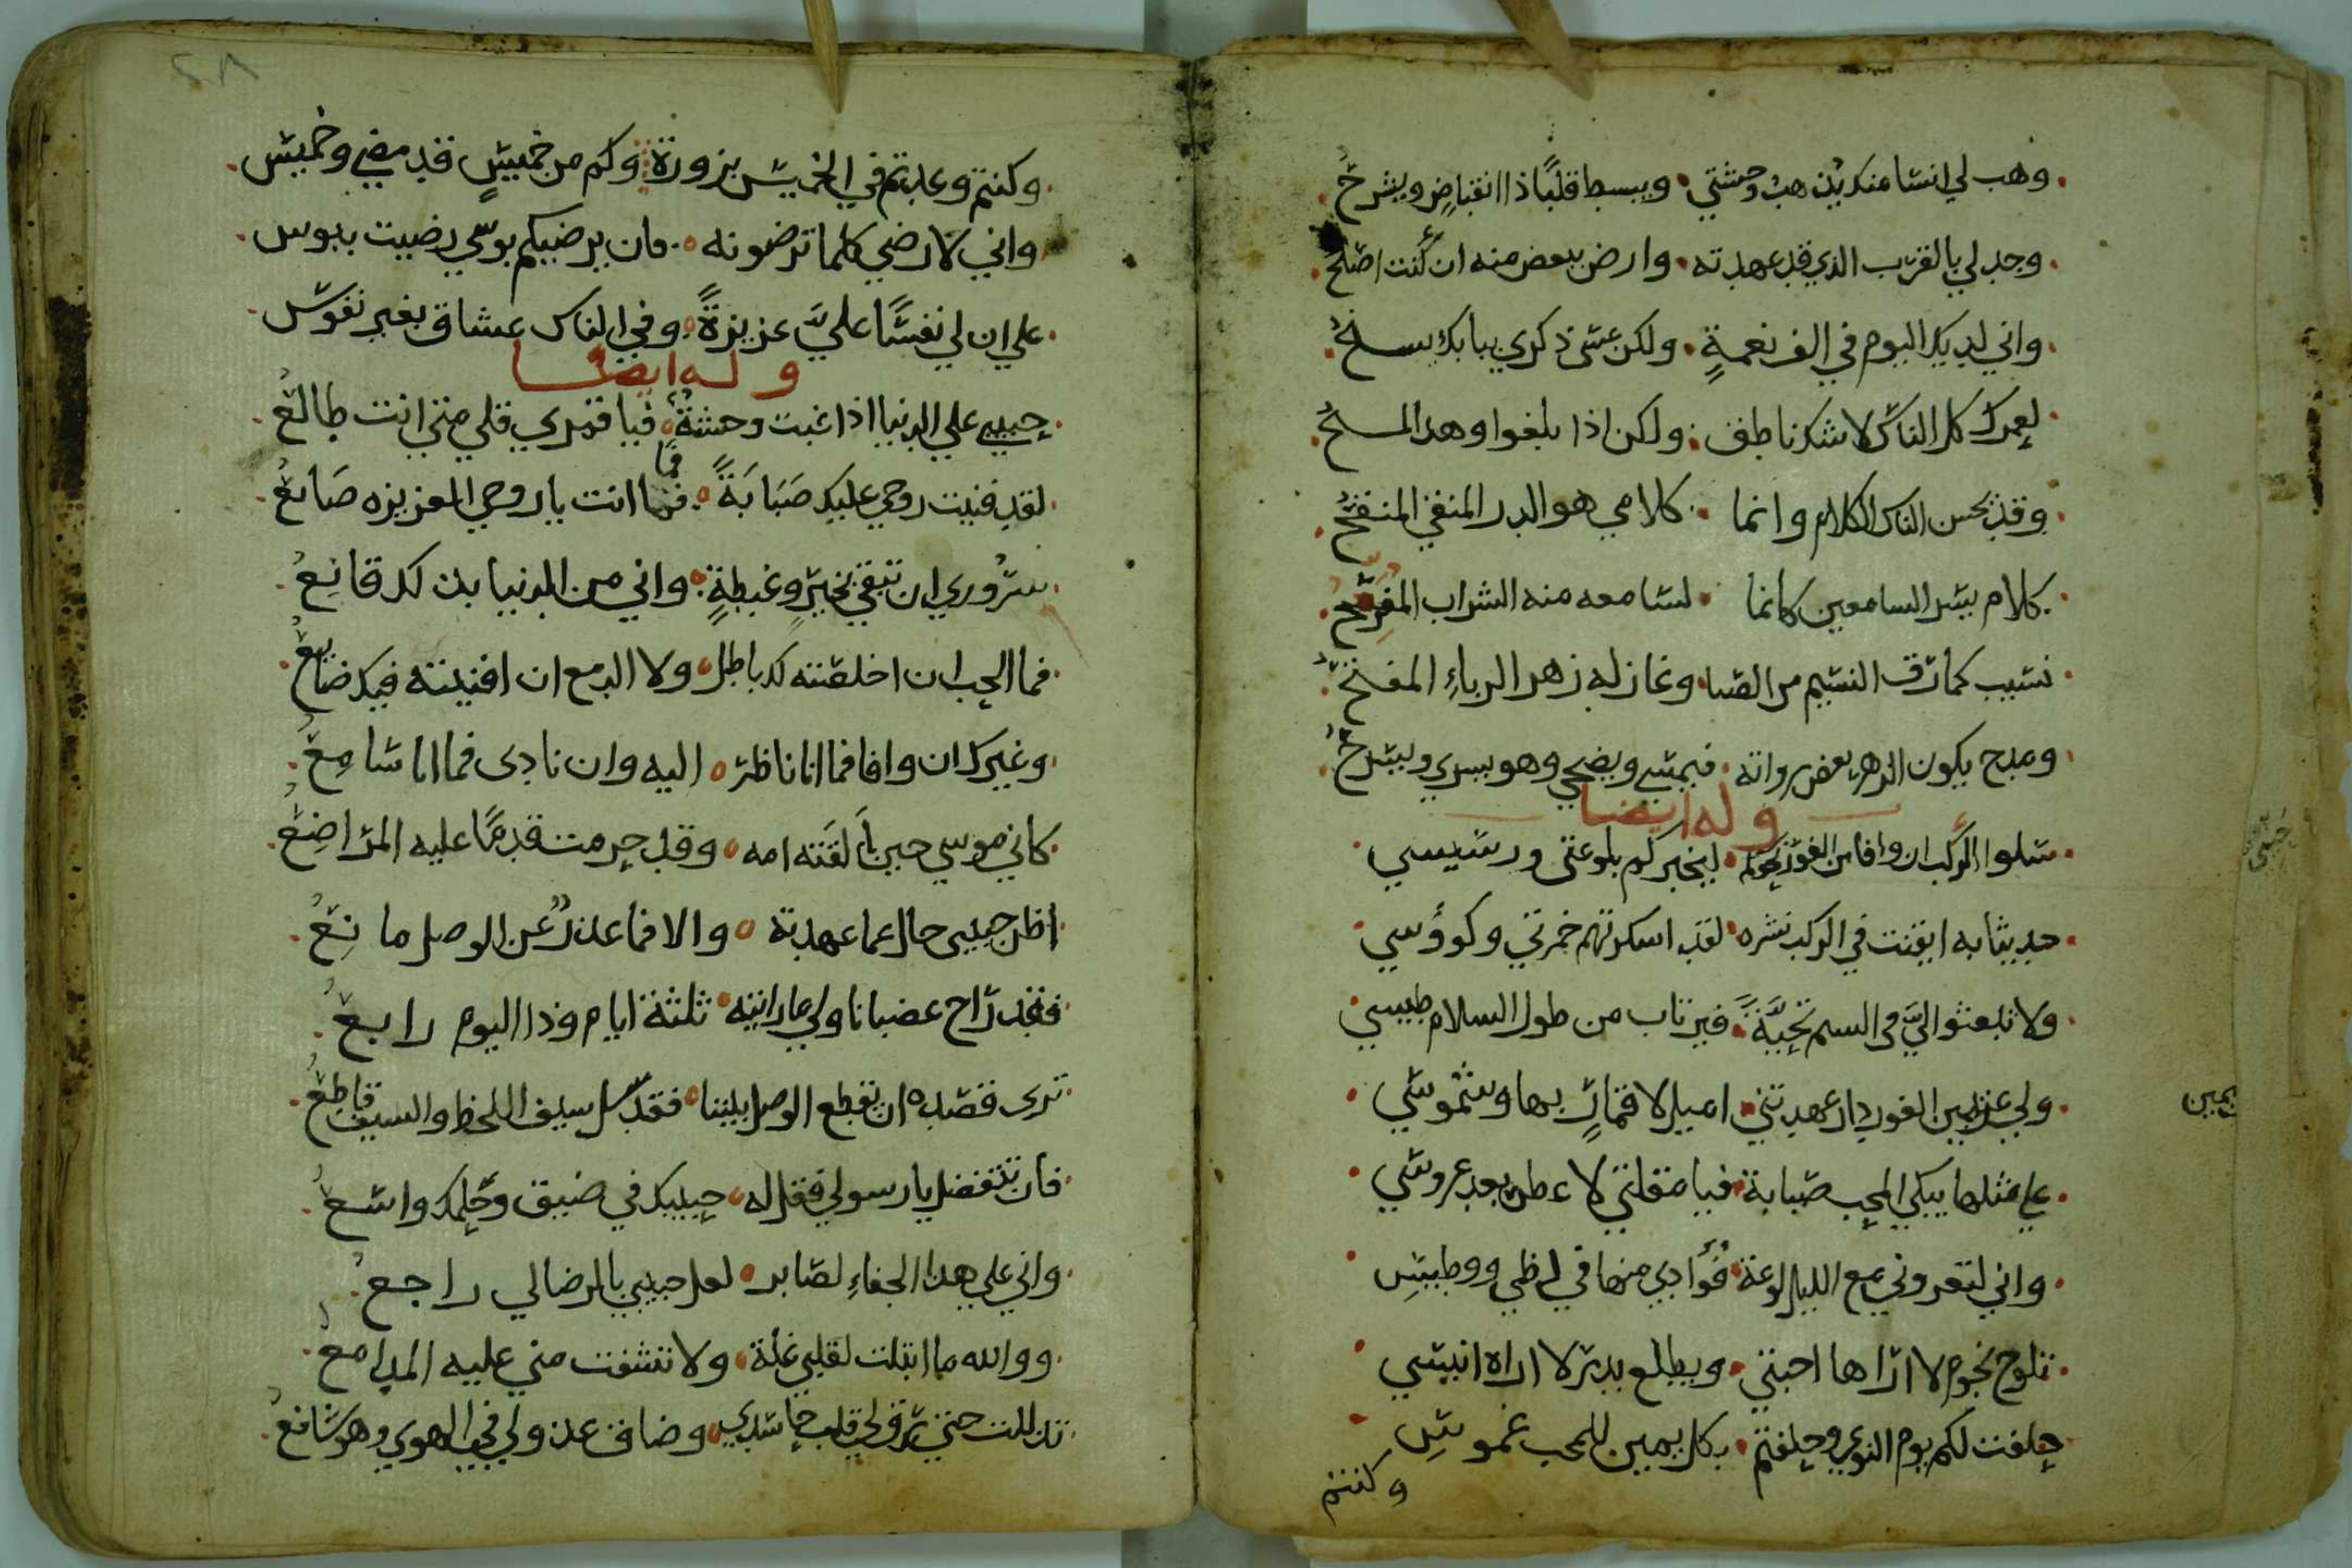 وهب لي انسا منك يذهب وحشتي ويبسط قلبًا ذا انقباضٍ ويشرحُ
وجد لي بالقرب الذي قد عهدته وارض ببعض منه ان كنت اصلحُ
واني لديك اليوم في الف نعمةٍ ولكن عسى ذكري ببابك يسنحُ
لعمرك كل الناس لا شك ناطق ولكن اذا بلغوا وهذا المسبحُ
وقد يحسن الناس الكلام وانما كلامي هو الدر المنقي المنقحُ
كلام يسر السامعين كانما لسامعه منه الشراب المفرحُ
نسيب كما رق النسيم من الصبا وغازله زهر الرباءِ المفتحُ
ومدح يكون الدهر بعض رواته فيمسي ويضحي وهو يسري ويسرحُ
وله ايضا
سلوا الركب ان وافا من الغور نحوكم ليخبركم بلوعتي ورسيسي
حديثا به ابقت في الركب نشره لقد اسكرتهم خمرتي وكوؤسي
ولا تبعثوا اليَّ في النسيم تحيَّةً فيرتاب من طول السلام جليسي
ولي عن يمين الغور دار عهدتني اميل لاقمارٍ بها وشموسي
علي مثلها يبكي المحب صبابة فيا مقلتي لا عطر بعد عروسي
واني لتعروني مع الليل لوعة فؤادي منها في لظي ووطيسِ
تلوح نجوم لا اراها احبتي ويطلع بدر لا اراه انيسي
حلفت لكم يوم النوي وحلفتم بكل يمين للمحب غموسِ
وكنتم
يمين
وكنتم وعدتم في الخميس بزورة وكم من خميسٍ قد مضي وخميس
واني لارضي كلما ترضونه فان يرضيكم بوسي رضيت ببوس
علي ان لي نفسًا عليَّ عزيزةً وفي الناس عشاق بغير نفوس
وله ايضا
حبيبي علي الدنيا اذا غبت وحشةٌ فيا قمري قلي متي انت طالعُ
لقد فنيت روحي عليك صَبَابَةً فما انت يا روحي العزيزه صَانعُ
فما
سروري ان تبقي بخيرٍ وغبطةٍ واني من الدنيا بذلك قانِعُ
فما الحب ان اخلصته لك باطل ولا الدمع ان افنيته فيك ضايعُ
وغيرك ان وافا فما انا ناظر اليه وان نادى فما انا سامِعُ
كاني موسي حين اَلقَته امه وقد حرمت قدمًا عليه المراضِعُ
اظن حبيبي حال عما عهدته والا فما عذرٌ عن الوصل مانِعُ
فقد راح غضبانا ولي ما رايته ثلثة ايام وذا اليوم رابعُ
ترى قصده ان تقطع الوصل بيننا فقد سل سيف اللحظ والسيف قاطعُ
فان تتفضل يا رسولي فقل له حبيبك في ضيق وحلمك واسعُ
واني علي هذا الجفاءِ لصابر لعل حبيبي بالرضا لي راجعُ
ووالله ما ابتلت لقلبي غلة ولا نشفت مني عليه المدامعُ
تذللت حتي رق لي قلب حاسدي وضاق عذولي في الهوي وهو شافعُ
٢٨